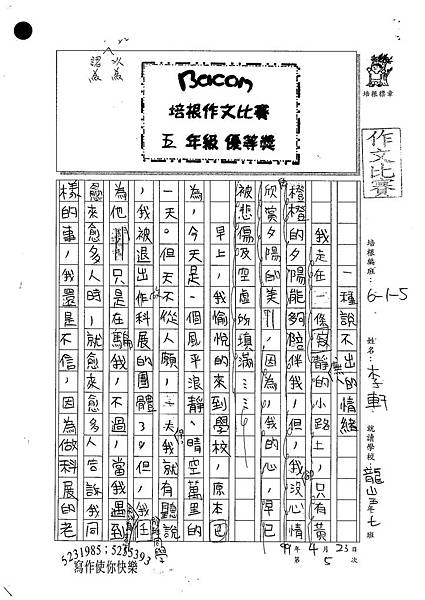 Bacon
培根作文比賽
五年級優等獎
以為
認為
培根標章
作文比賽
培根編班：6-1-5
姓名：李軒
就讀學校 龍山 五年七班
99年4月23日
第5次
一種說不出的情緒
我走在一條寂靜的小路上，只有黃
橙橙的夕陽能夠陪伴我，但，我沒心情
欣賞夕陽的美，因為，我的心，早已
被悲傷及空虛所填滿……
早上，我愉悅的來到學校，原本已
為，今天是一個風平浪靜、晴空萬里的
一天。但天不從人願，一天我就有聽說
，我被退出作科展的團體了，但，我任
為他只是在騙我，不過，當我遇到
愈來愈多人時，就愈來愈多人告訴我同
樣的事，我還是不信，因為做科展的老
5231985；5235393
寫作使你快樂